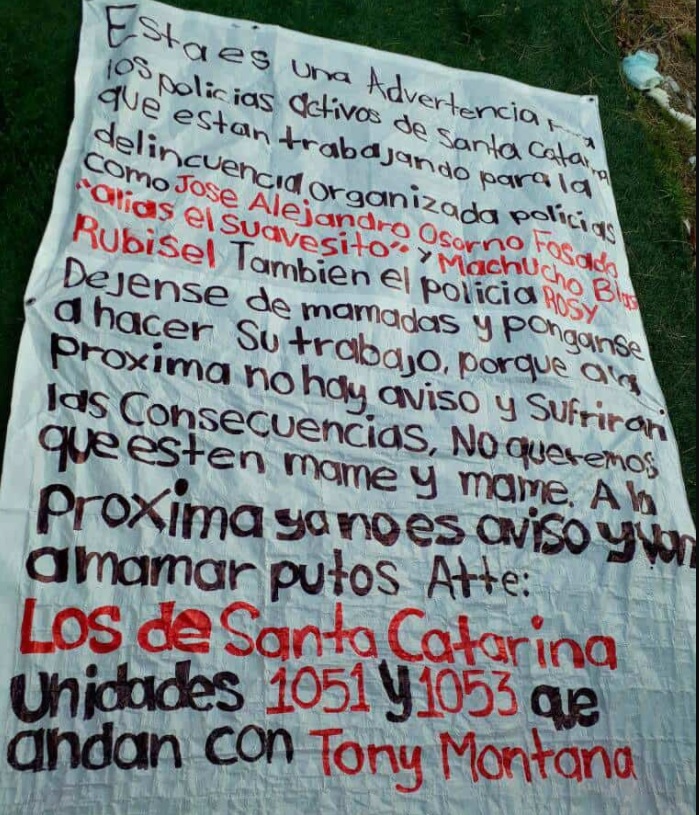 Esta es una Advertencia
los policias activos de Santa Catarina
que estan trabajando para la
delincuencia organizada policias
como Jose Alejandro Osorno Fosado
"alias el Suavesito" y Machucho Blas
Rubisel Tambien el policia ROSY
Dejense de mamadas y ponganse
a hacer Su trabajo, porque a la
proxima no hay aviso y Sufriran
las Consecuencias, No queremos
que esten mame y mame. A la
proxima ya no es aviso y van
a mamar putos Atte:
Los de Santa Catarina
unidades 1051 y 1053 que
andan con Tony Montana